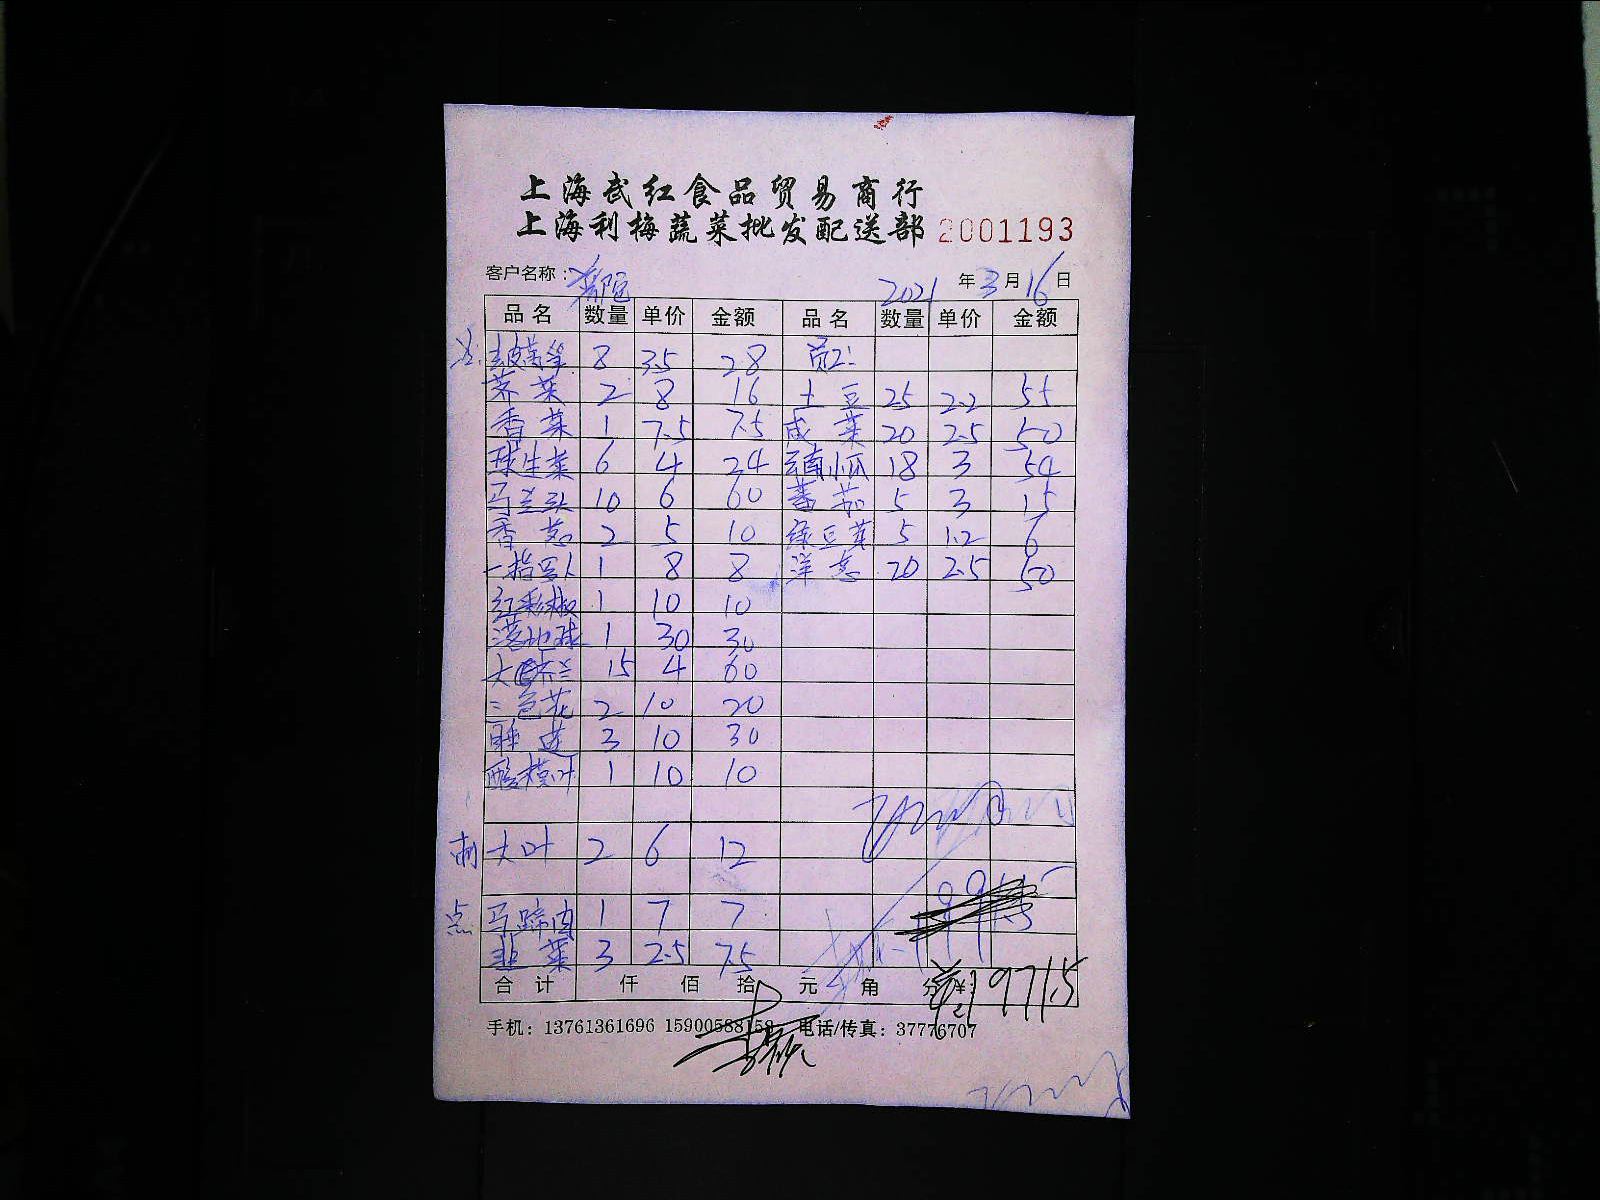 上海武红食品贸易商行
上海利梅蔬菜批发配送部 2001193
客户名称： 2021 年 3 月 16 日
品名 数量 单价 金额 品名 数量 单价 金额
去皮莴笋 8 3.5 28 员工:
荠菜 2 8 16 土豆 25 2.2 55
香菜 1 7.5 7.5 咸菜 20 2.5 50
球生菜 6 4 24 云南小瓜 18 3 54
马兰头 10 6 60 番茄 5 3 15
香葱 2 5 10 绿豆芽 5 1.2 6
一指 1 8 8 洋葱 20 2.5 50
红彩椒 1 10 10
球 1 30 30
大 兰 15 4 60
三色花 2 10 20
睡莲 3 10 30
酸模叶 1 10 10
刺 大叶 2 6 12
点 马蹄肉 1 7 7
韭菜 3 2.5 7.5
合计 仟 佰 拾 元 角 分 ¥:
手机：13761361696 15900588158 电话/传真：37776707